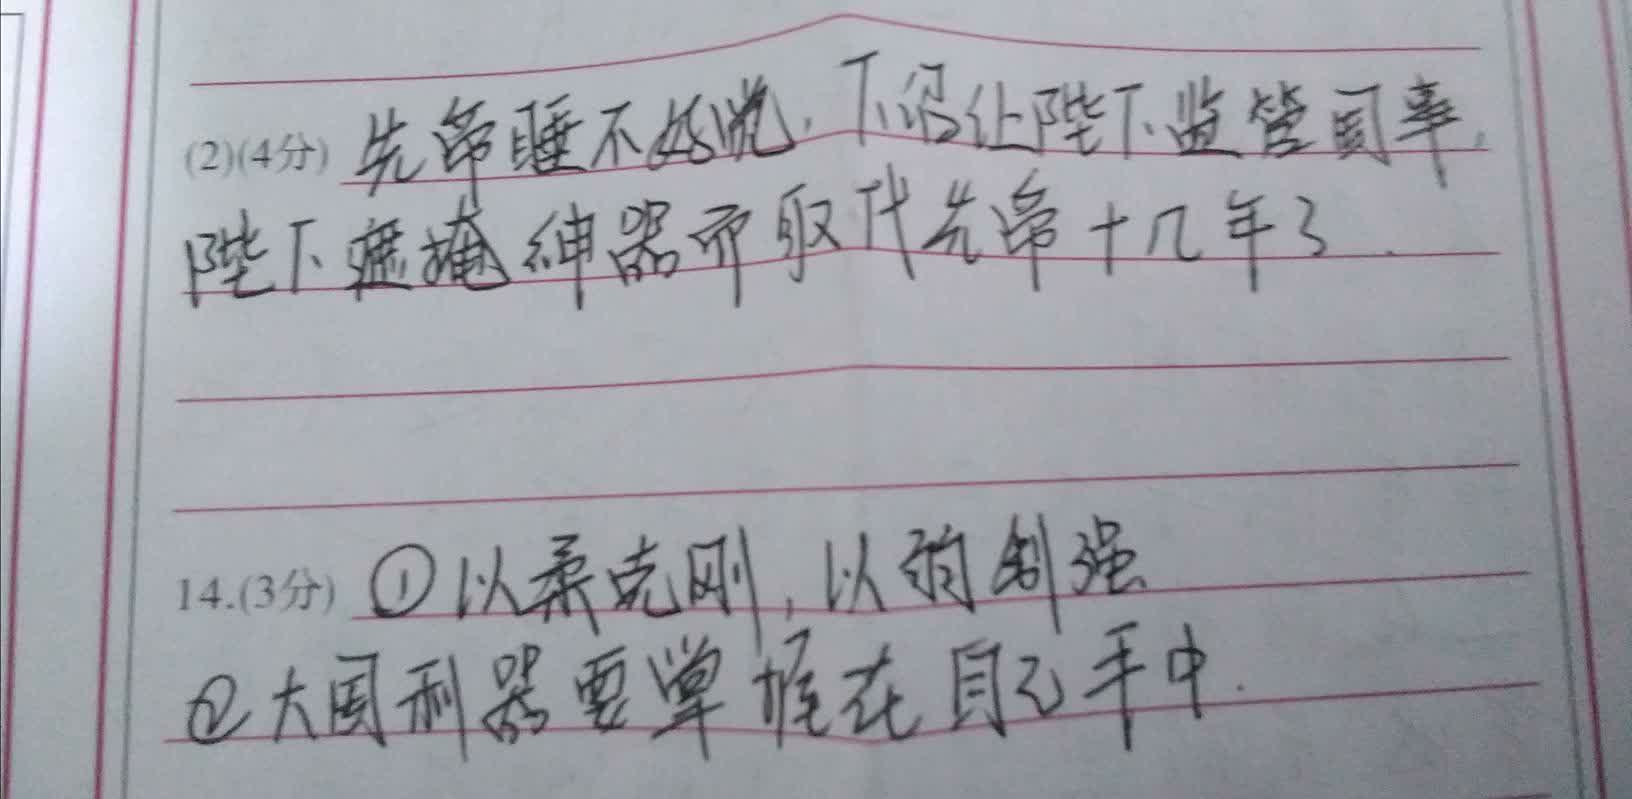 (2)(4分) 先帝睡不好觉,不得让陛下监管国事,
陛下遮掩绅器而取代先帝十几年了.
14.(3分) ①以柔克刚,以弱制强
②大国利器要掌握在自己手中.